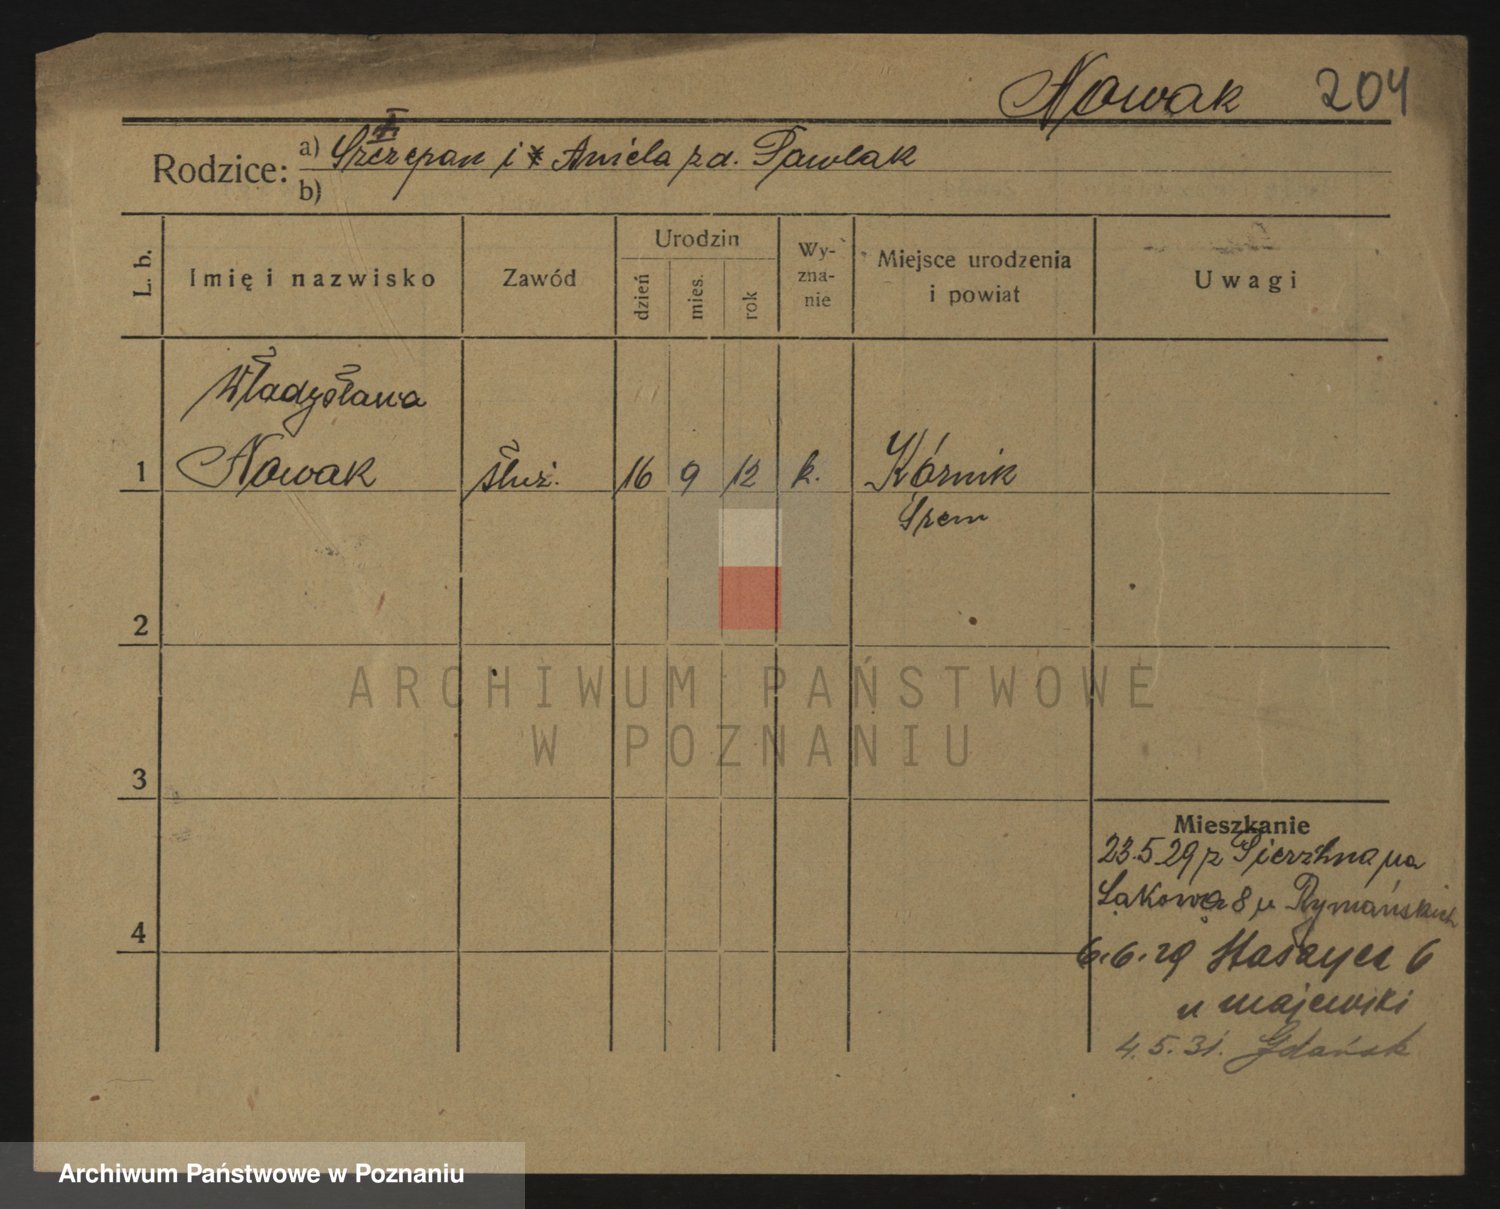 Nowak 204
Rodzice: a) Szczepan i Aniela zd. Pawlak
b)
L. b.
Imię i nazwisko
Zawód
Urodzin
dzień
mies.
rok
Wy-
zna-
nie
Miejsce urodzenia
i powiat
Uwagi
Władysława
1 Nowak służ. 16 9 12 k. Kórnik
Śrem
2
3
4
Mieszkanie
23.5 29 z Pierzchna na
Łąkowa 8 u Rymańskich
6.6.29 Staszyca 6
u majewski
4.5.31. Gdańsk
ARCHIWUM PAŃSTWOWE
W POZNANIU
Archiwum Państwowe w Poznaniu